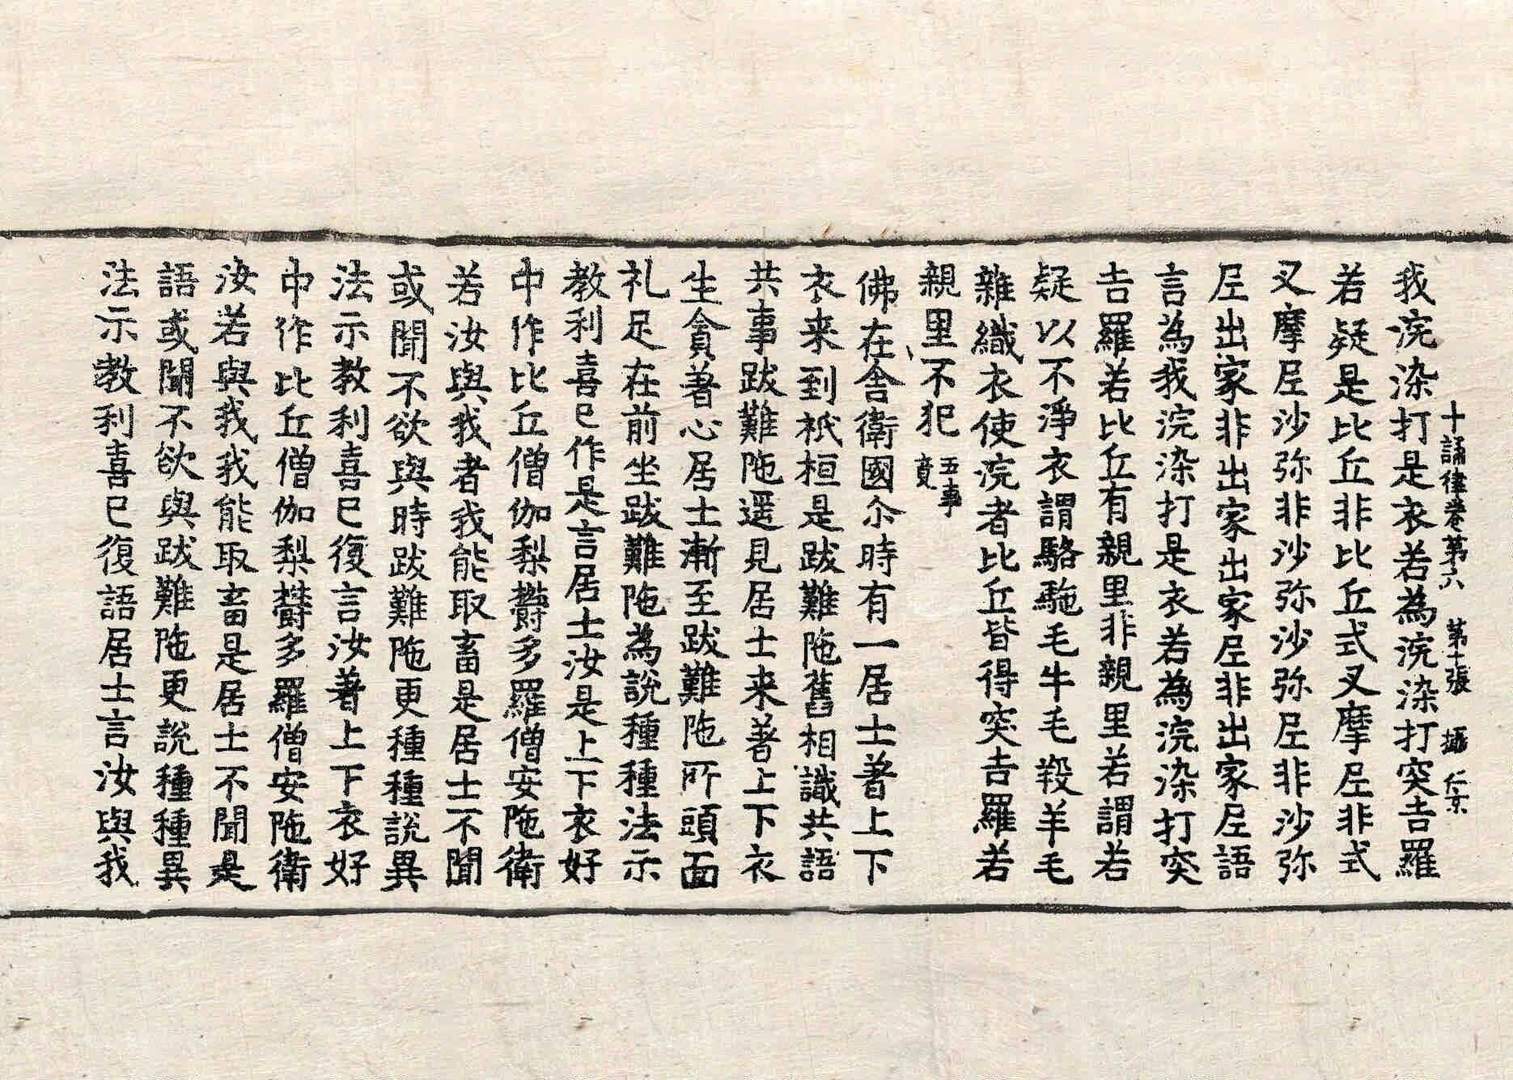 十誦律卷第六 第十張 攝 仁
我浣染打是衣若為浣染打突吉羅
若疑是比丘非比丘式叉摩𡰱非式
叉摩𡰱沙弥非沙弥沙弥𡰱非沙弥
𡰱出家非出家出家𡰱非出家𡰱語
言為我浣染打是衣若為浣染打突
吉羅若比丘有親里非親里若謂若
疑以不淨衣謂駱駞毛牛毛羖羊毛
雜織衣使浣者比丘皆得突吉羅若
親里不犯 五事竟
佛在舍衛國尒時有一居士著上下
衣来到祇桓是跋難陁舊相識共語
共事跋難陁遥見居士来著上下衣
生貪著心居士漸至跋難陁所頭面
礼足在前坐跋難陁為說種種法示
教利喜已作是言居士汝是上下衣好
中作比丘僧伽梨欝多羅僧安陁衛
若汝與我者我能取畜是居士不聞
或聞不欲與時跋難陁更種種說異
法示教利喜已復言汝著上下衣好
中作比丘僧伽梨欝多羅僧安陁衛
汝若與我我能取畜是居士不聞是
語或聞不欲與跋難陁更說種種異
法示教利喜已復語居士言汝與我